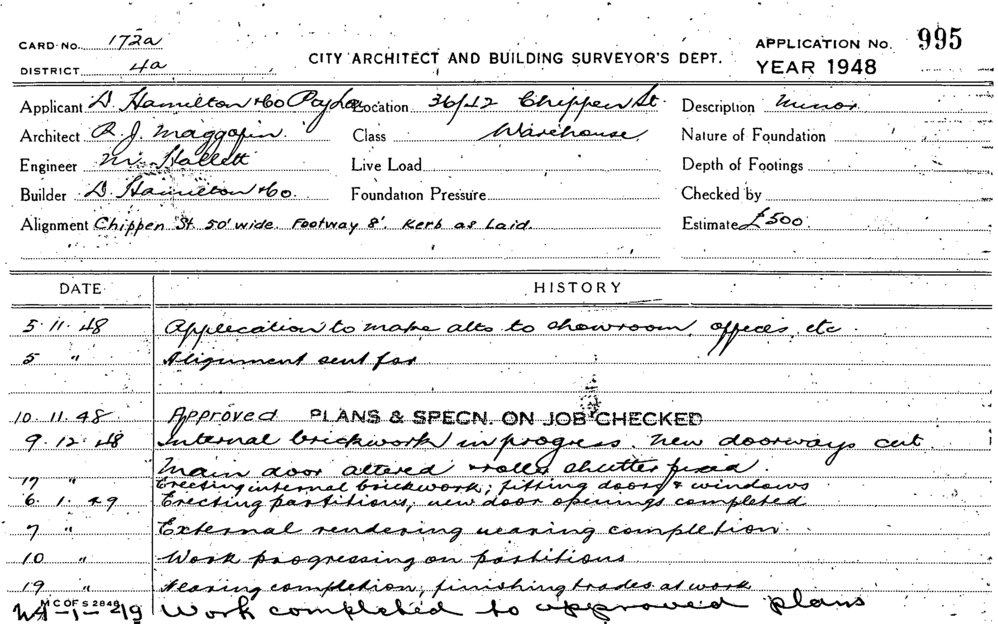 CARD No. 172a
DISTRICT 4a
CITY ARCHITECT AND BUILDING SURVEYOR'S DEPT.
APPLICATION No. 995
YEAR 1948
Applicant D. Hamilton & Co Pty Ltd Location 36/42 Chippen St. Description Minor
Architect R. J. Maggofin Class Warehouse Nature of Foundation
Engineer M. Hallett Live Load Depth of Footings
Builder D. Hamilton & Co. Foundation Pressure Checked by
Alignment Chippen St 50' wide. Footway 8'. Kerb as Laid. Estimate £500
DATE HISTORY
5.11.48 Application to make alts to showroom, offices, etc
5 " Alignment sent for
10.11.48 Approved PLANS & SPECN. ON JOB CHECKED
9.12.48 Internal brickwork in progress. New doorways cut.
Main door altered & roller shutter fixed.
17 " Erecting internal brickwork; fitting doors & windows
6.1.49 Erecting partitions, new door openings completed
7 " External rendering nearing completion
10 " Work progressing on partitions
19 " Nearing completion, finishing trades at work
M C OF S 2848
24-1-49 Work completed to approved plans